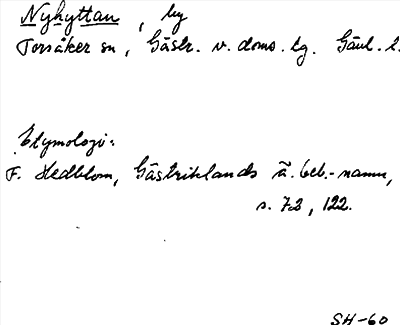 Nyhyttan, by
Torsåker sn, Gästr. v. doms. tg. Gävl. l.
Etymologi:
F. Hedblom, Gästriklands ä. beb.-namn,
s. 72, 122.
SH-60